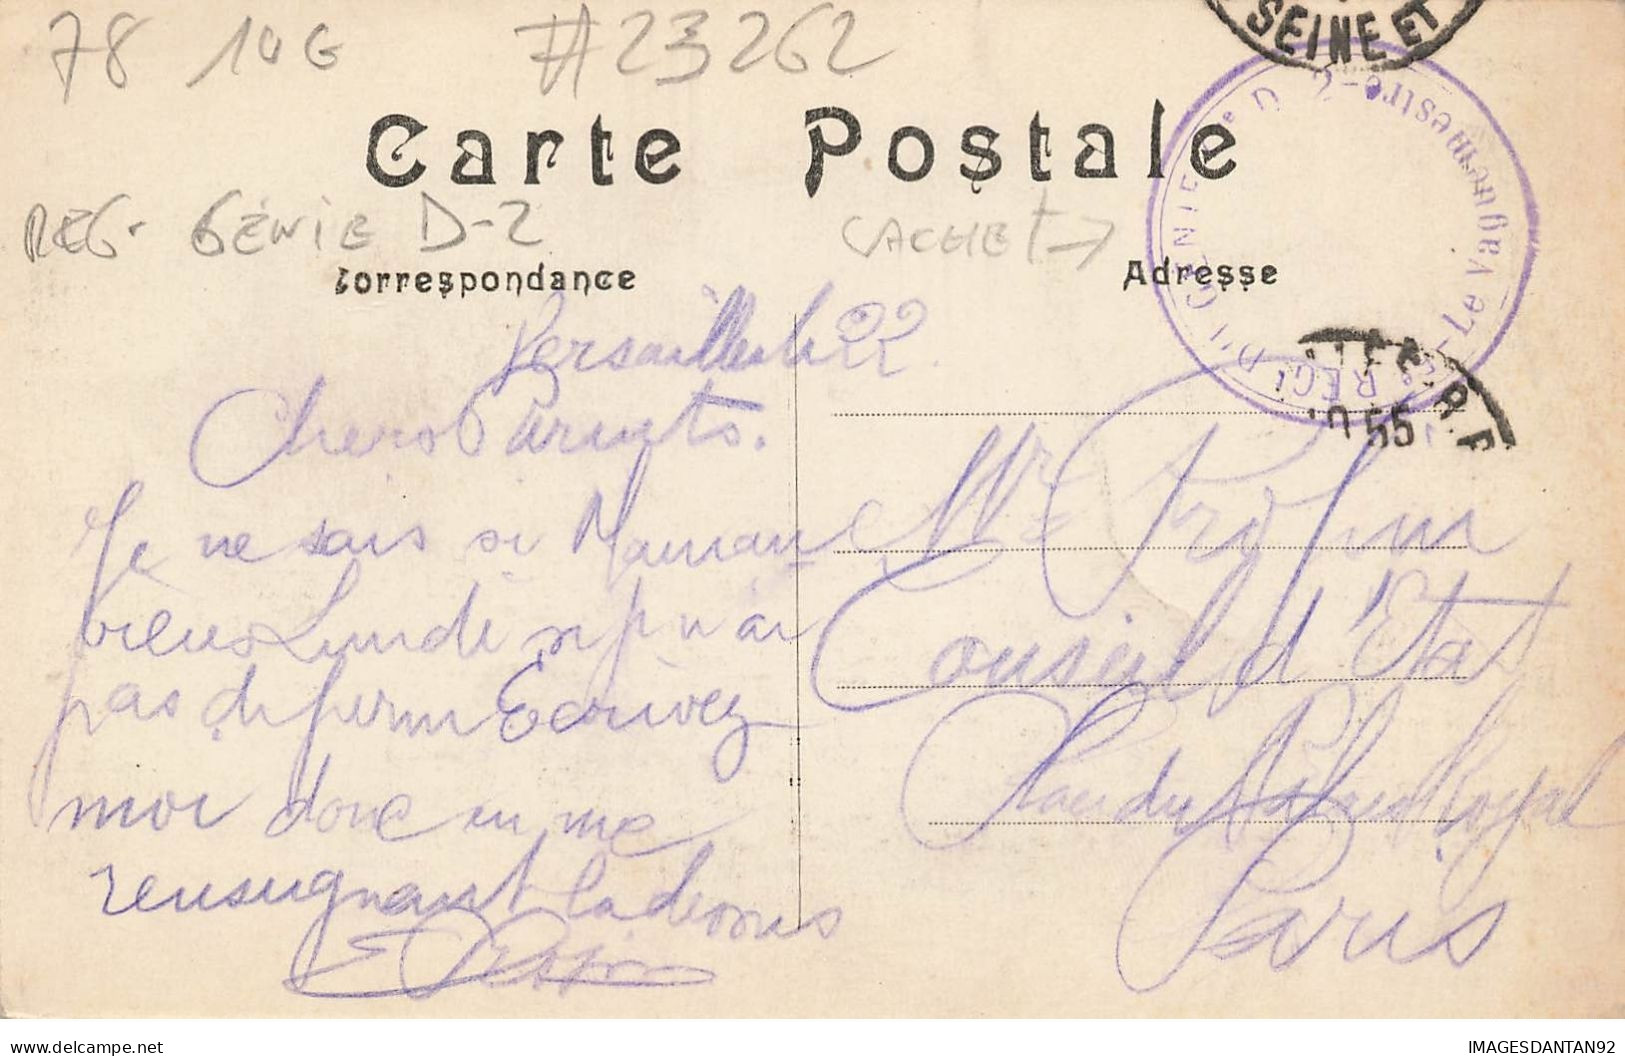 78 10G #23262
SEINE ET
Carte Postale
REG. GÉNIE D-2
CACHET →
Correspondance
Adresse
REGt DU GENIE
Le Vaguemestre
10 55
Versailles le 22
Chers Parents.
Je ne sais si Maman
viens Lundi si je n'ai
pas de perm Ecrivez
moi donc en me
renseignant
Mr
Conseil d'Etat
Place du Palais Royal
Paris
IMAGESDANTAN92
delcampe.net